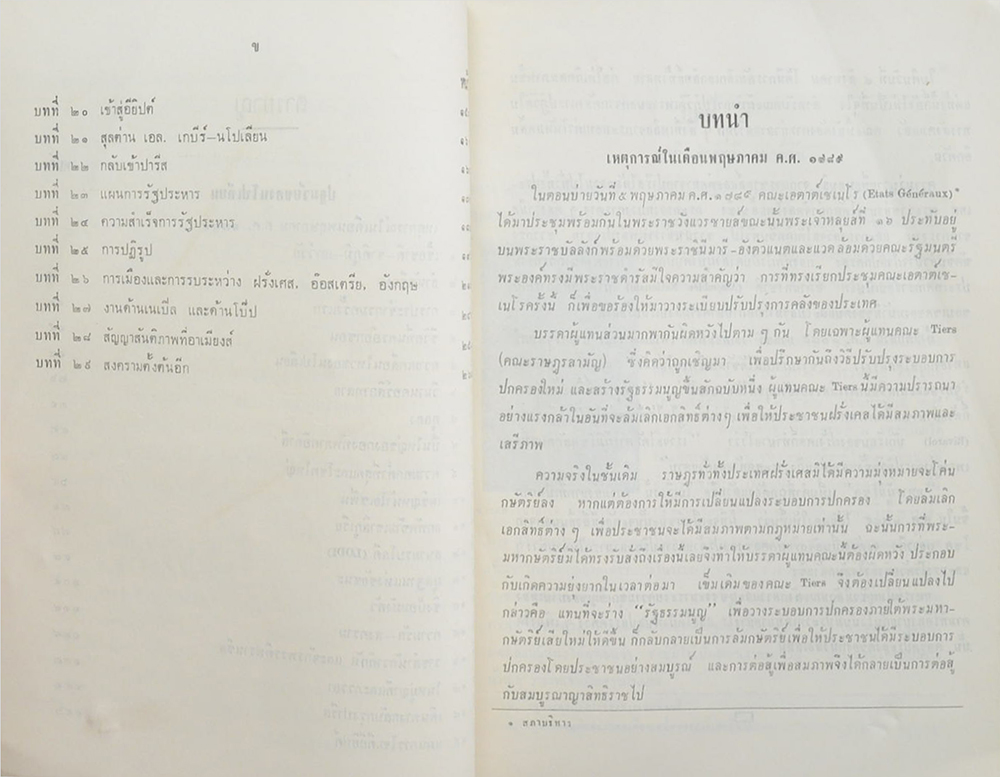 ข
บทที่ ๒๐ เข้าสู่อียิปต์
บทที่ ๒๑ สุลต่าน เอล. เกบีร์—นโปเลียน
บทที่ ๒๒ กลับเข้าปารีส
บทที่ ๒๓ แผนการรัฐประหาร
บทที่ ๒๔ ความสำเร็จการรัฐประหาร
บทที่ ๒๕ การปฏิรูป
บทที่ ๒๖ การเมืองและการรบระหว่าง ฝรั่งเศส, ออิสเตรีย, อังกฤษ
บทที่ ๒๗ งานด้านเนเปิล และด้านโป๊ป
บทที่ ๒๘ สัญญาสันติภาพที่อาเมียงส์
บทที่ ๒๙ สงครามตั้งต้นอีก
บทนำ
เหตุการณ์ในเดือนพฤษภาคม ค.ศ. ๑๗๘๙
ในตอนบ่ายวันที่ ๕ พฤษภาคม ค.ศ. ๑๗๘๙ คณะเอตาต์เซเนโร (Etats Généraux)*
ได้มาประชุมพร้อมกันในพระราชวังแวรซายส์ขณะนั้นพระเจ้าหลุยส์ที่ ๑๖ ประทับอยู่
บนพระราชบัลลังก์พร้อมด้วยพระราชินีมารี-อังตัวแนตและแวดล้อมด้วยคณะรัฐมนตรี
พระองค์ทรงมีพระราชดำรัสมีใจความสำคัญว่า การที่ทรงเรียกประชุมคณะเอตาต์เซ-
เนโรครั้งนี้ ก็เพื่อขอร้องให้มาวางระเบียบปรับปรุงการคลังของประเทศ
บรรดาผู้แทนส่วนมากพากันผิดหวังไปตาม ๆ กัน โดยเฉพาะผู้แทนคณะ Tiers
(คณะราษฎรสามัญ) ซึ่งคิดว่าถูกเชิญมา เพื่อปรึกษากันถึงวิธีปรับปรุงระบอบการ
ปกครองใหม่ และสร้างรัฐธรรมนูญขึ้นสักฉบับหนึ่ง ผู้แทนคณะ Tiers นี้มีความปรารถนา
อย่างแรงกล้าในอันที่จะล้มเลิกเอกสิทธิ์ต่างๆ เพื่อให้ประชาชนฝรั่งเศสได้มีสมภาพและ
เสรีภาพ
ความจริงในชั้นเดิม ราษฎรทั่วทั้งประเทศฝรั่งเศสมิได้มีความมุ่งหมายจะโค่น
กษัตริย์ลง หากแต่ต้องการให้มีการเปลี่ยนแปลงระบอบการปกครอง โดยล้มเลิก
เอกสิทธิ์ต่าง ๆ เพื่อประชาชนจะได้มีสมภาพตามกฎหมายเท่านั้น ฉะนั้นการที่พระ-
มหากษัตริย์มิได้ทรงรับสั่งถึงเรื่องนี้เลยจึงทำให้บรรดาผู้แทนคณะนี้ต้องผิดหวัง ประกอบ
กับเกิดความยุ่งยากในเวลาต่อมา เข็มเดิมของคณะ Tiers จึงต้องเปลี่ยนแปลงไป
กล่าวคือ แทนที่จะร่าง "รัฐธรรมนูญ" เพื่อวางระบอบการปกครองภายใต้พระมหา-
กษัตริย์เสียใหม่ให้ดีขึ้น ก็กลับกลายเป็นการล้มกษัตริย์เพื่อให้ประชาชนได้มีระบอบการ
ปกครองโดยประชาชนอย่างสมบูรณ์ และการต่อสู้เพื่อสมภาพจึงได้กลายเป็นการต่อสู้
กับสมบูรณาญาสิทธิราชไป
๑ สภาบริหาร